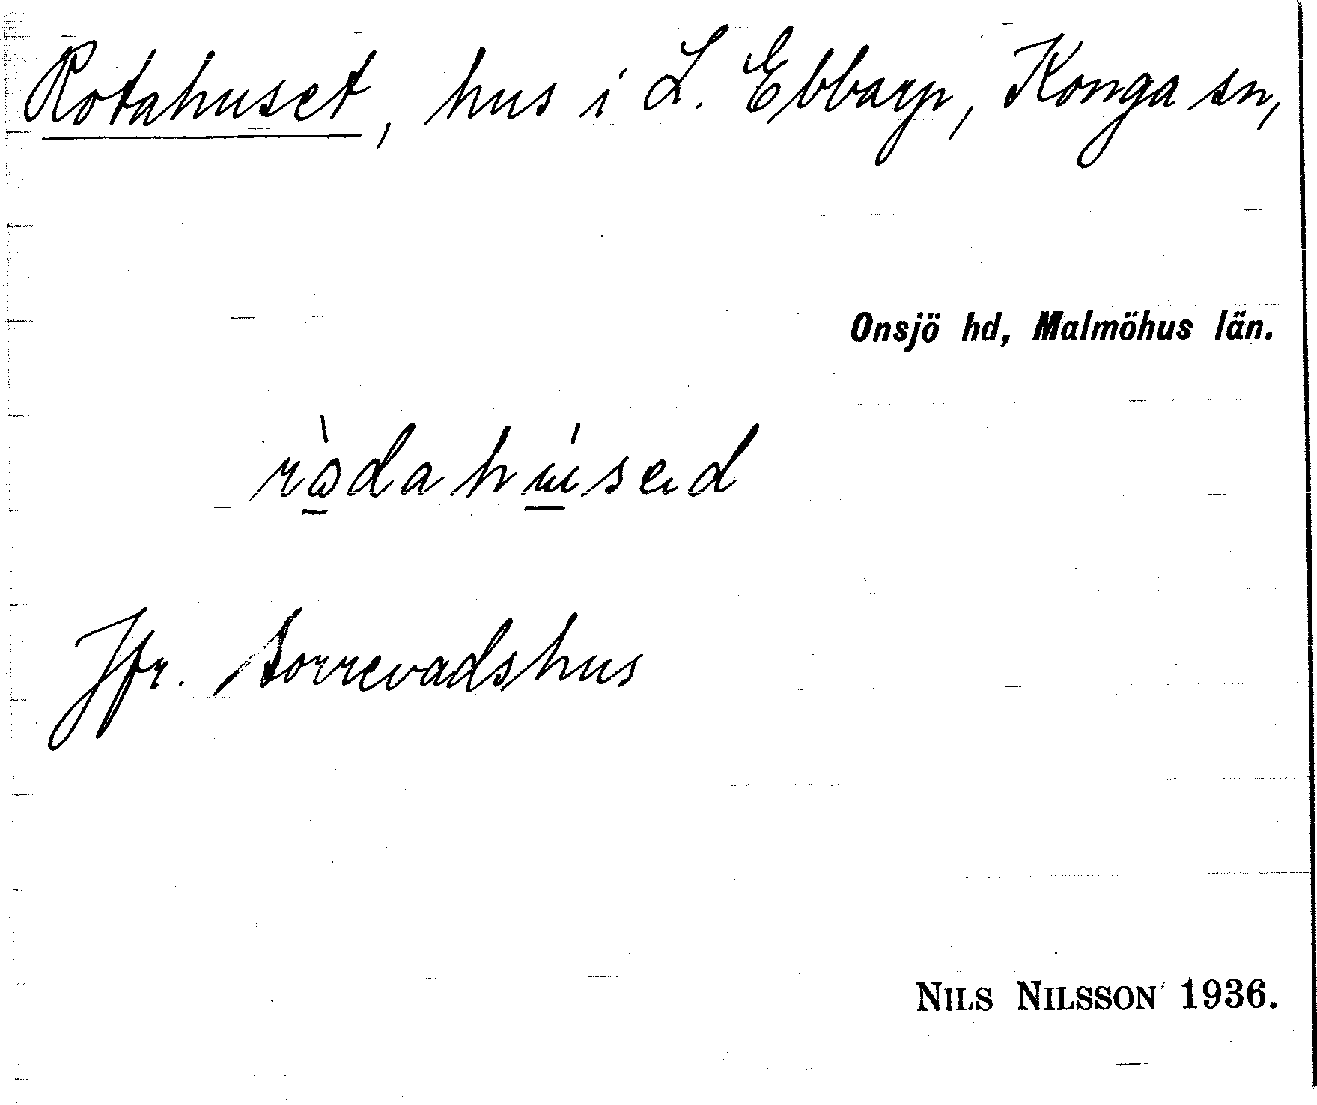 Rotahuset, hus i L. Ebbarp, Konga sn,
Onsjö hd, Malmöhus län.
Jfr. Borrevadshus
NILS NILSSON 1936.